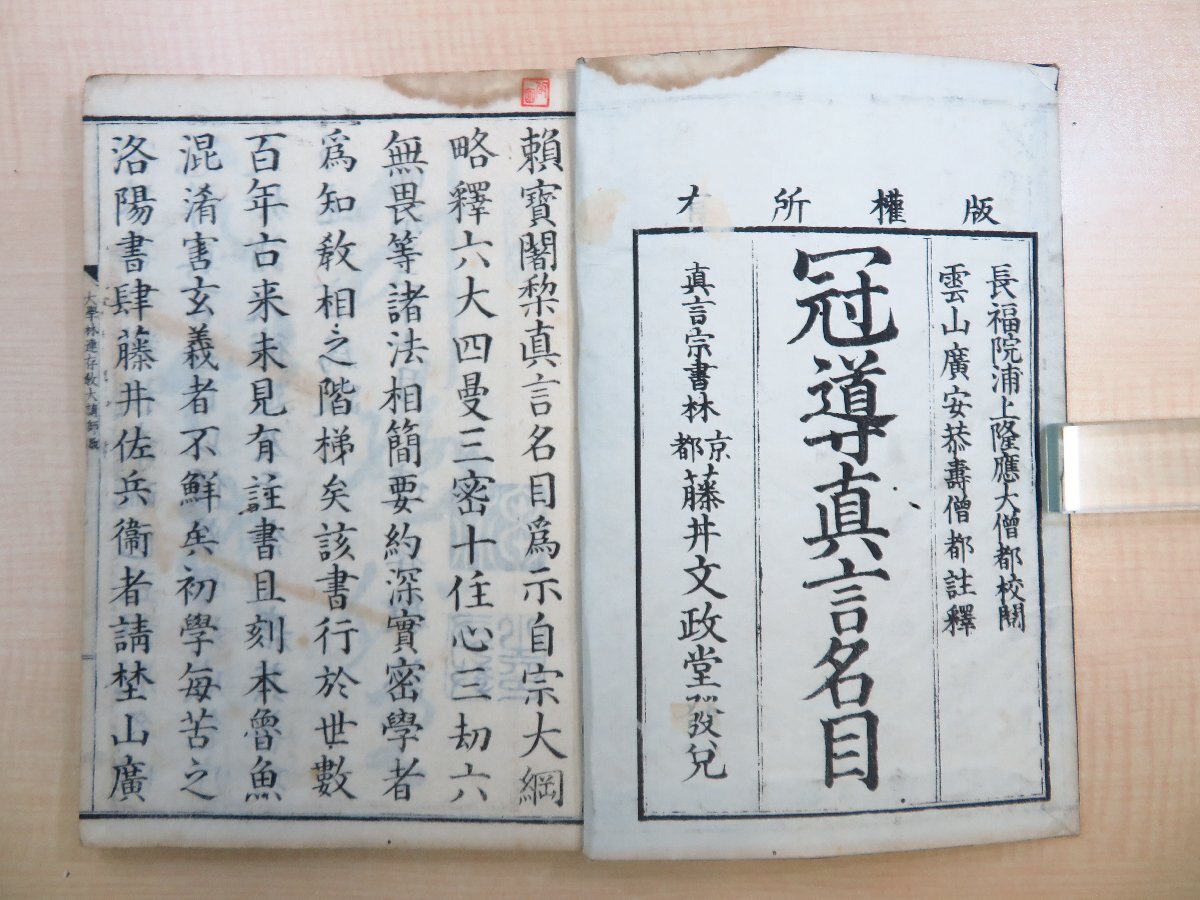 版權所有
長福院浦上隆應大僧都校閲
雲山廣安恭壽僧都註釋
冠導真言名目
真言宗書林 京都 藤井文政堂發兌
賴寶闍棃眞言名目爲示自宗大綱
略釋六大四曼三密十住心三劫六
無畏等諸法相簡要約深實密學者
爲知敎相之階梯矣該書行於世數
百年古来未見有註書且刻本魯魚
混淆害玄義者不鮮矣初學每苦之
洛陽書肆藤井佐兵衞者請埜山廣